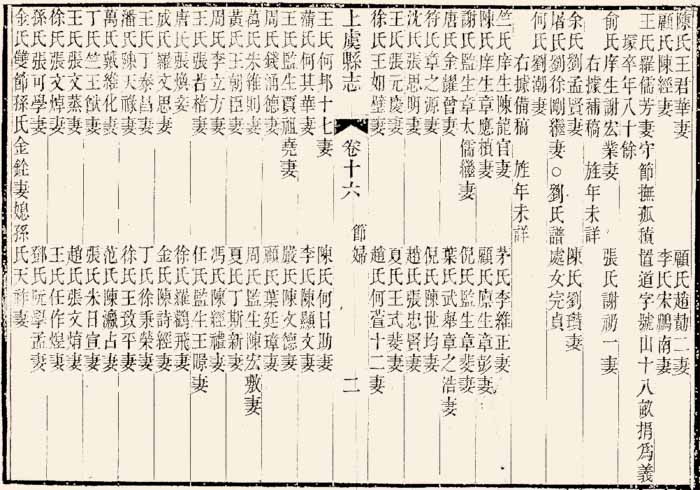 陳氏王君華妻 顧氏趙勛二妻
顧氏陳經妻 李氏宋鵬南妻
王氏羅儒芳妻守節撫孤積置道字號山十八畝捐為義
塚卒年八十餘
右據補稿 旌年未詳
俞氏庠生謝宏業妻 張氏謝礽一妻
余氏劉孟賢妻 陳氏劉瓚妻
屠氏劉徐剛繼妻○劉氏譜處女完貞
何氏劉潮妻
右據備稿 旌年未詳
竺氏庠生陳龍官妻 茅氏李維正妻
陳氏庠生章應楨妻 顧氏廩生章彭妻
謝氏監生章太儒繼妻 倪氏監生章斐妻
唐氏金耀曾妻 葉氏武舉章之浩妻
徐氏章之源妻 倪氏陳世均妻
沈氏張思明妻 趙氏張忠賢妻
王氏張元慶妻 夏氏王式斐妻
徐氏王如璧妻 趙氏何萱十二妻
上虞縣志 卷十六 節婦 二
王氏何邦十七妻 陳氏何日勛妻
蒲氏何其華妻 李氏陳顯文妻
王氏監生賈祖堯妻 嚴氏陳文德妻
周氏錢湧德妻 顧氏葉廷璋妻
萬氏朱維則妻 周氏監生陳宏敷妻
黃氏王朝臣妻 夏氏丁斯新妻
周氏李立方妻 馮氏陳經禮妻
王氏張若楷妻 任氏監生王賜妻
唐氏張煥妻 徐氏羅鶴飛妻
成氏羅文思妻 金氏陳詩經妻
王氏丁泰昌妻 丁氏徐秉榮妻
潘氏陳天祿妻 徐氏王致平妻
萬氏戴維化妻 范氏陳瀛占妻
丁氏竺王猷妻 張氏朱日宣妻
王氏張文燕妻 趙氏張文焴妻
徐氏張文焯妻 王氏任作煜妻
孫氏張可學妻 鄧氏阮學孟妻
余氏雙節孫氏金銓妻媳孫氏天祚妻